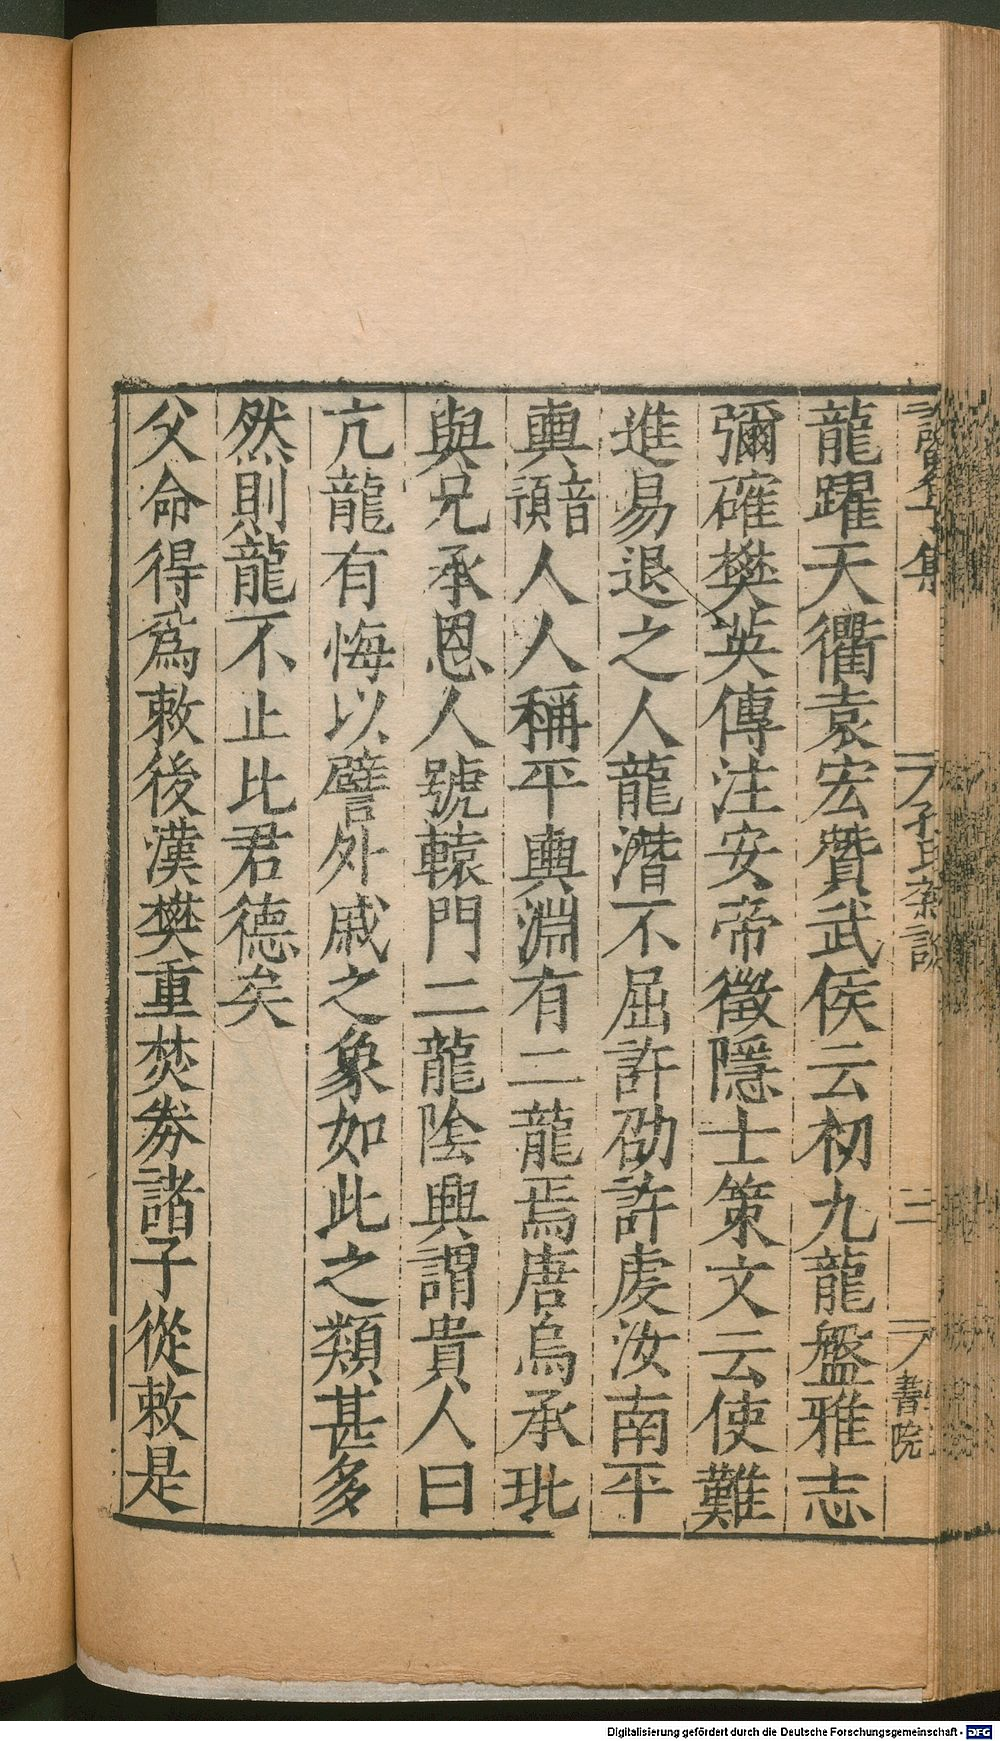 龍躍天衢袁宏贊武侯云初九龍盤雅志
彌確樊英傳注安帝徵隱士策文云使難
進易退之人龍潛不屈許劭許虔汝南平
輿音預人人稱平輿淵有二龍焉唐烏承玼
與兄承恩人號轅門二龍陰興謂貴人曰
亢龍有悔以譬外戚之象如此之類甚多
然則龍不止比君德矣
父命得爲敕後漢樊重焚券諸子從敕是
孔氏雜說
三
書院
Digitalisierung gefördert durch die Deutsche Forschungsgemeinschaft - DFG